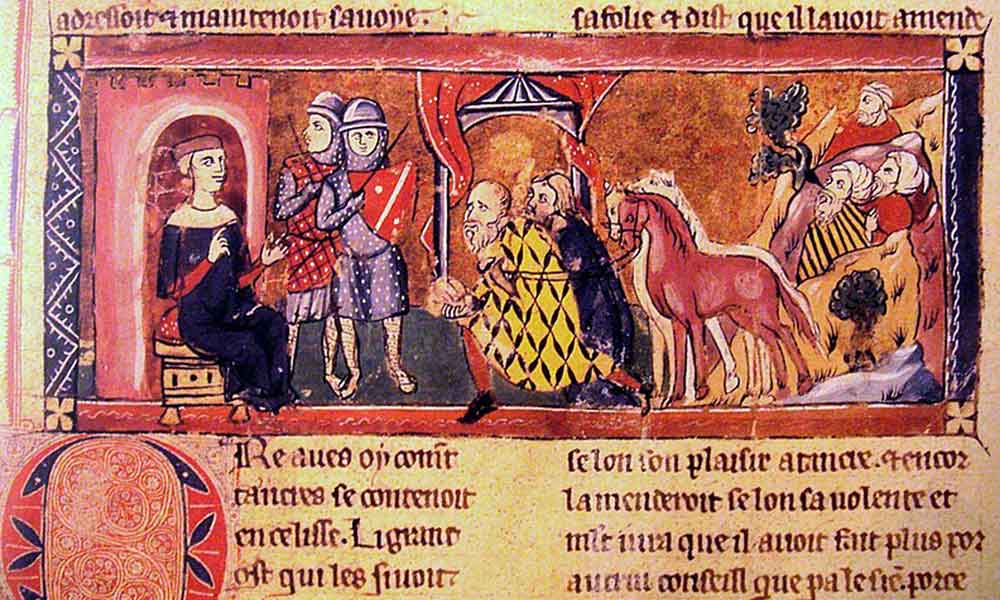 adressoit ⁊ maintenoit sa voye.
sa folie ⁊ dist que il lavoit amende
O Re aves oy comt
tancres se contenoit
en celisse. Li grant
ost qui les sivoit
selon son plaisir a tancre. ⁊ encor
lamenderoit se lon sa volente et
mlt iura que il avoit fait plus por
autrui conseill que pa le sie. porce